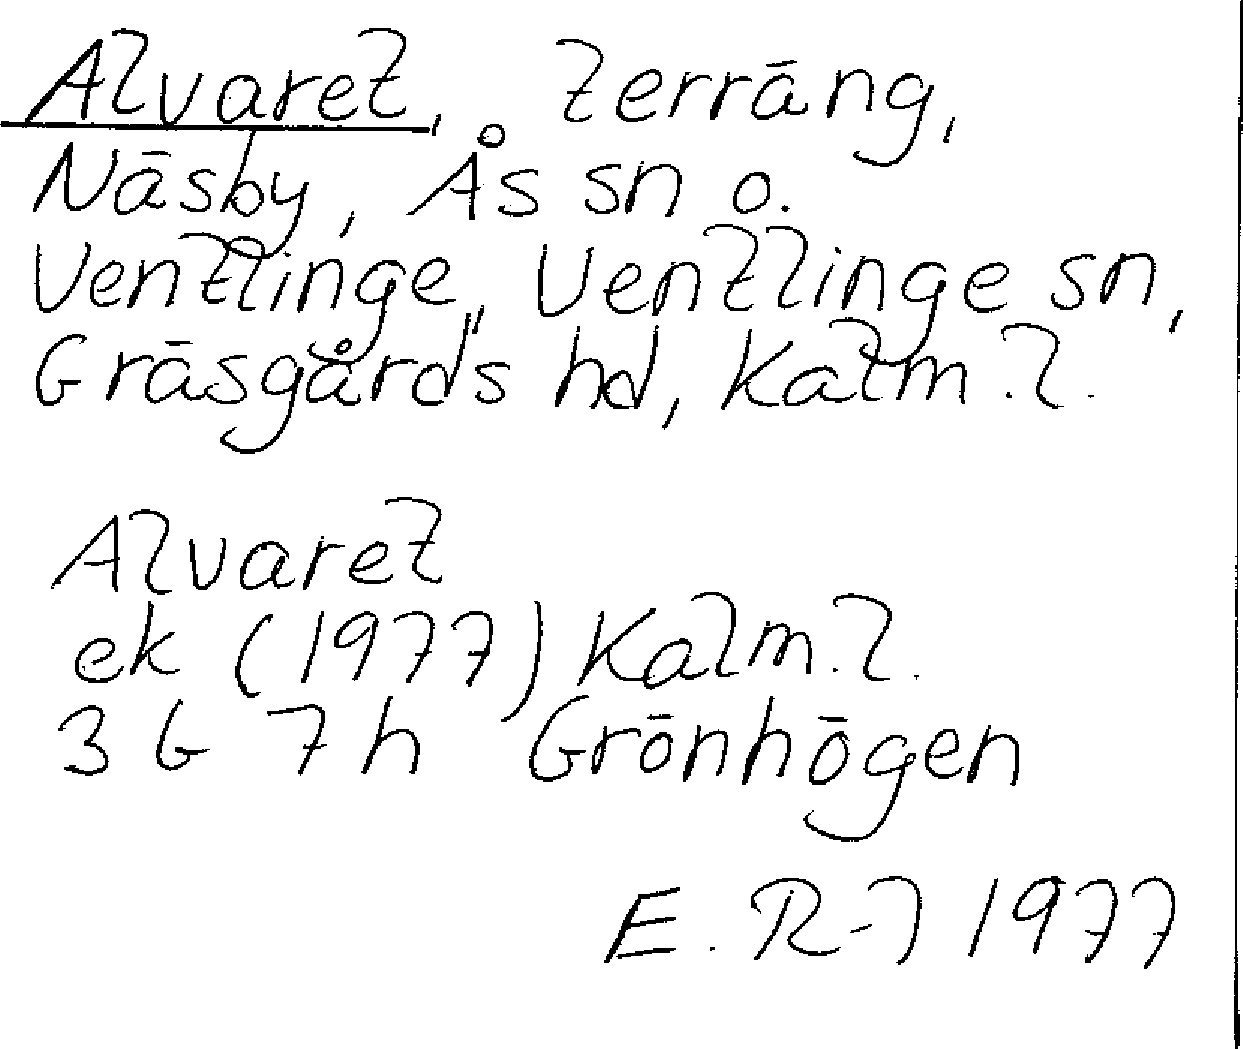 Alvaret, terräng,
Näsby, Ås sn o.
Ventlinge, Ventlinge sn,
Gräsgårds hd, Kalm.l.
Alvaret
ek (1977) Kalm.l.
3 G 7h Grönhögen
E. R-J 1977